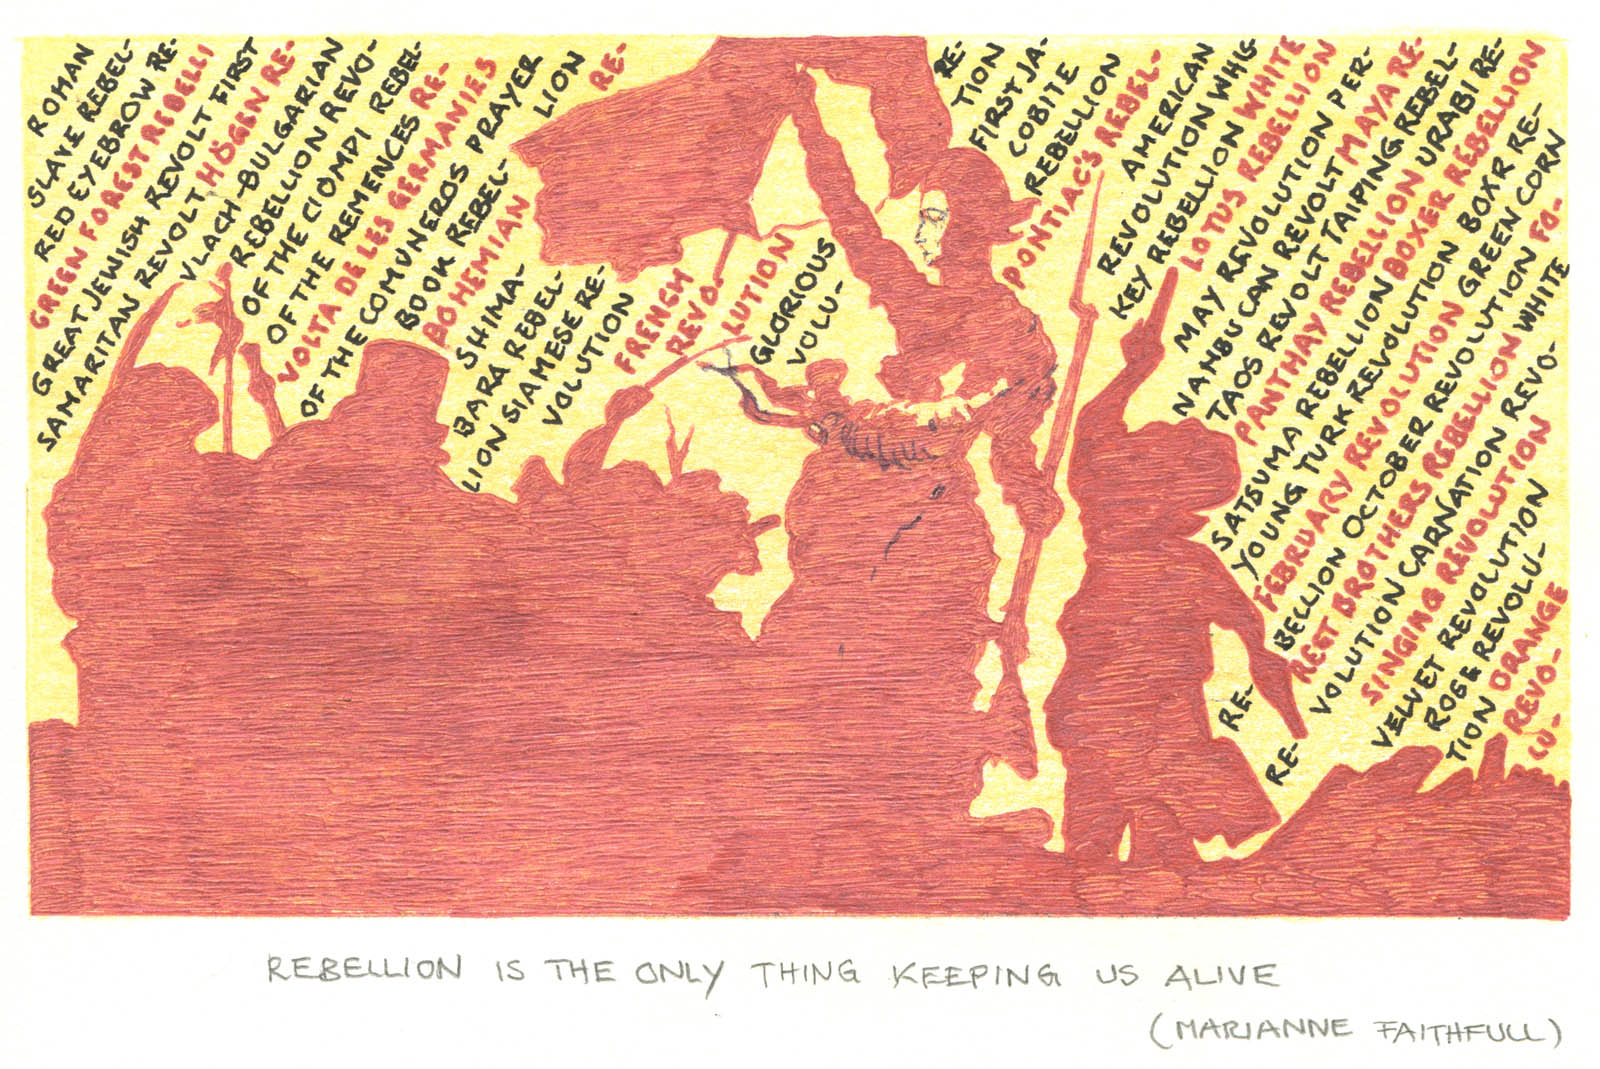 ROMAN
SLAVE REBEL-
RED EYEBROW RE-
GREEN FOREST REBELLI
GREAT JEWISH REVOLT FIRST
SAMARITAN REVOLT HÖGEN RE-
VLACH-BULGARIAN
REBELLION REVO-
OF THE CIOMPI REBEL-
OF THE REMENCES RE-
VOLTA DE LES GERMANIES
OF THE COMVNEROS PRAYER
BOOK REBEL- LION
BOHEMIAN RE-
SHIMA-
BARA REBEL-
LION SIAMESE RE-
VOLUTION
FRENGH
REVO- LUTION
GLORIOUS
VOLU-
RE-
TION
FIRST JA-
COBITE
REBELLION
PONTIAC'S REBEL-
AMERICAN
REVOLUTION WHIG-
KEY REBELLION WHITE
LOTUS REBELLION
MAY REVOLUTION PER-
NANBU CAN REVOLT MAYA RE-
TAOS REVOLT TAIPING REBEL-
PANTHAY REBELLION URABI RE-
SATSUMA REBELLION BOXER REBELLION
YOUNG TURK REVOLUTION BOXR RE-
FEBRUARY REVOLUTION GREEN CORN
RE- BELLION OCTOBER REVOLUTION FO-
REST BROTHERS REBELLION WHITE
RE- VOLUTION CARNATION REVO-
SINGING REVOLUTION
VELVET REVOLUTION
ROSE REVOLU-
TION ORANGE
REVO-
LU-
REBELLION IS THE ONLY THING KEEPING US ALIVE
(MARIANNE FAITHFULL)